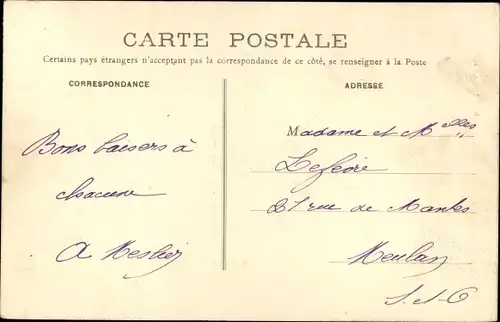 CARTE POSTALE
Certains pays étrangers n'acceptant pas la correspondance de ce côté, se renseigner à la Poste
CORRESPONDANCE
ADRESSE
Bons baisers à
chacune
A
Madame et Melles
Lefevre
rue de Mantes
Meulan
S.-et-O